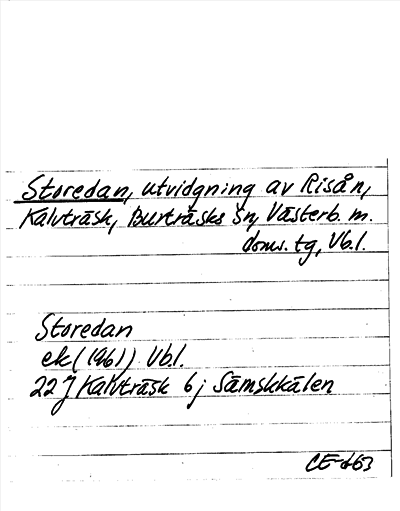 Storedan, utvidgning av Risån,
Kalvträsk, Burträsks sn, Västerb. m.
doms. tg, Vb.l.
Storedan
ek (1961) Vb.l.
22 J Kalvträsk 6 j Sämskkälen